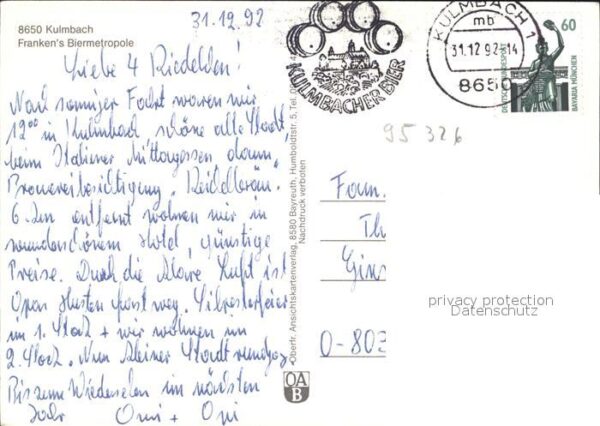 8650 Kulmbach
Franken's Biermetropole
31.12.92
Liebe 4 Riedelden!
Nach sonniger Fahrt waren wir
12⁰⁰ in Kulmbach schöne alte Stadt
beim Italiener Mittagessen dann
Brauereibesichtigung. Reichelbräu.
6 km entfernt wohnen wir in
wunderschönem Hotel, günstige
Preise. Durch die klare Luft ist
Opas Husten fast weg. Silvesterfeier
im 1. Stock + wir wohnen im
2. Stock. Nun kleiner Stadtrundgang
Bis zum Wiedersehen im nächsten
Jahr Omi + Opi
KULMBACHER BIER
KULMBACH 1
mb
31.12.92-14
8650
60
DEUTSCHE BUNDESPOST
BAVARIA MÜNCHEN
95 326
Fam.
Th
O-803
Oberfr. Ansichtskartenverlag, 8580 Bayreuth, Humboldtstr. 5, Tel.
Nachdruck verboten
OA
B
privacy protection
Datenschutz